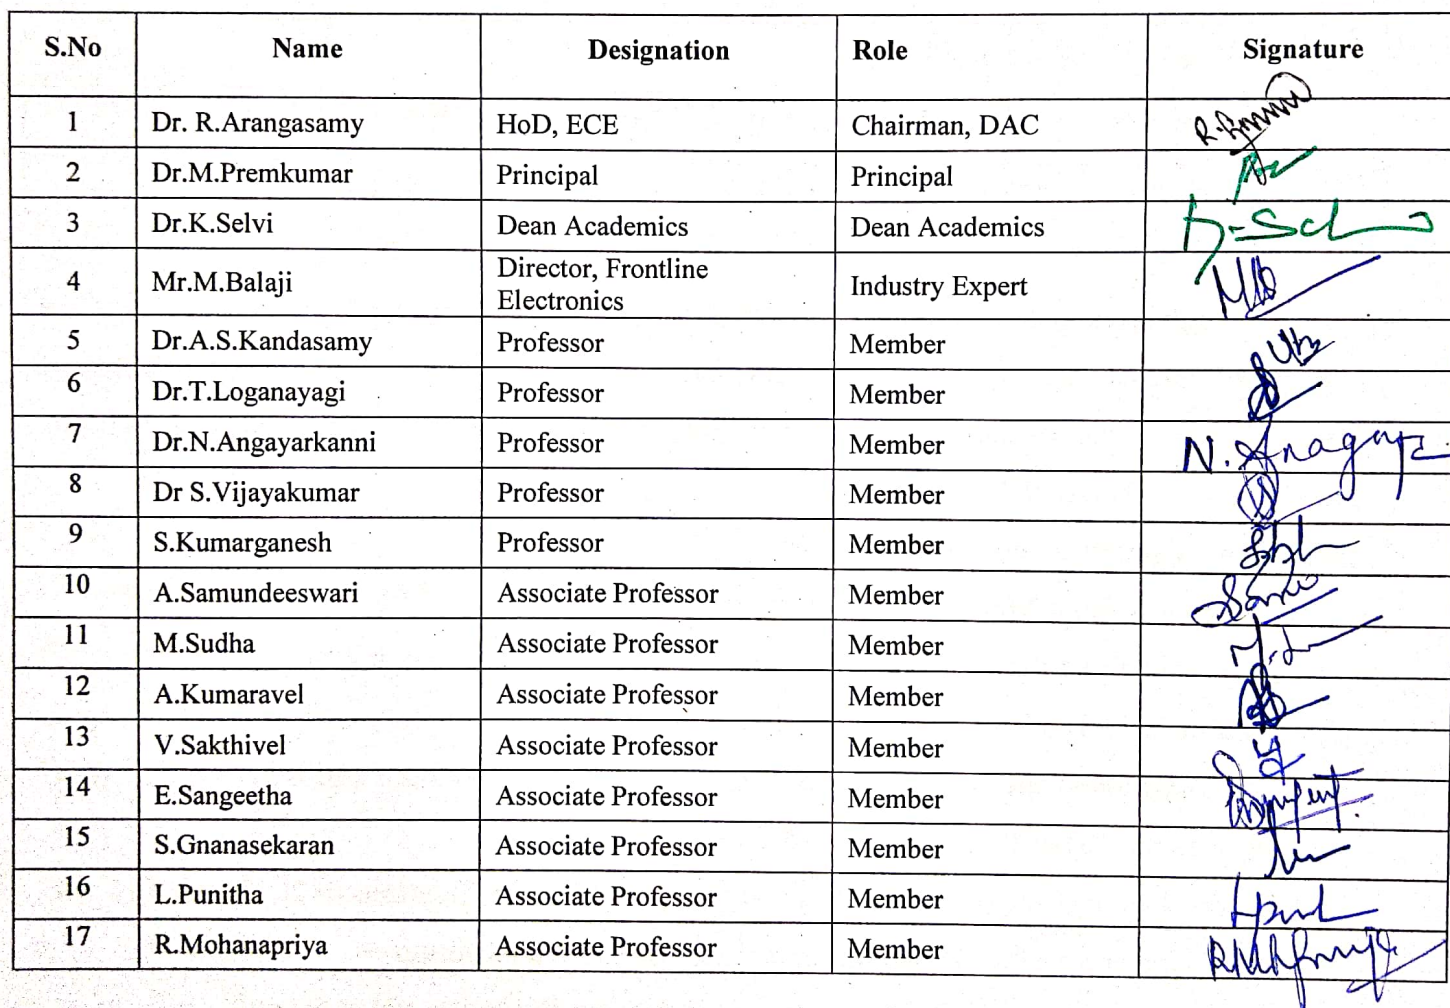 S.No Name Designation Role Signature
1 Dr. R.Arangasamy HoD, ECE Chairman, DAC
2 Dr.M.Premkumar Principal Principal
3 Dr.K.Selvi Dean Academics Dean Academics
4 Mr.M.Balaji Director, Frontline
Electronics Industry Expert
5 Dr.A.S.Kandasamy Professor Member
6 Dr.T.Loganayagi Professor Member
7 Dr.N.Angayarkanni Professor Member
8 Dr S.Vijayakumar Professor Member
9 S.Kumarganesh Professor Member
10 A.Samundeeswari Associate Professor Member
11 M.Sudha Associate Professor Member
12 A.Kumaravel Associate Professor Member
13 V.Sakthivel Associate Professor Member
14 E.Sangeetha Associate Professor Member
15 S.Gnanasekaran Associate Professor Member
16 L.Punitha Associate Professor Member
17 R.Mohanapriya Associate Professor Member